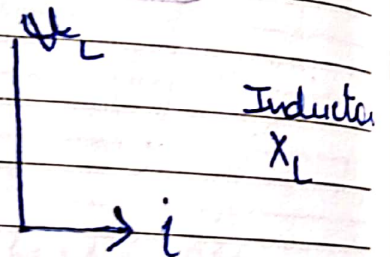 V_L
Inducta
X_L
i